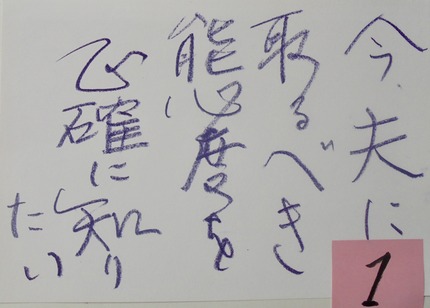 今夫に
取るべき
態度を
正確に知り
たい
1